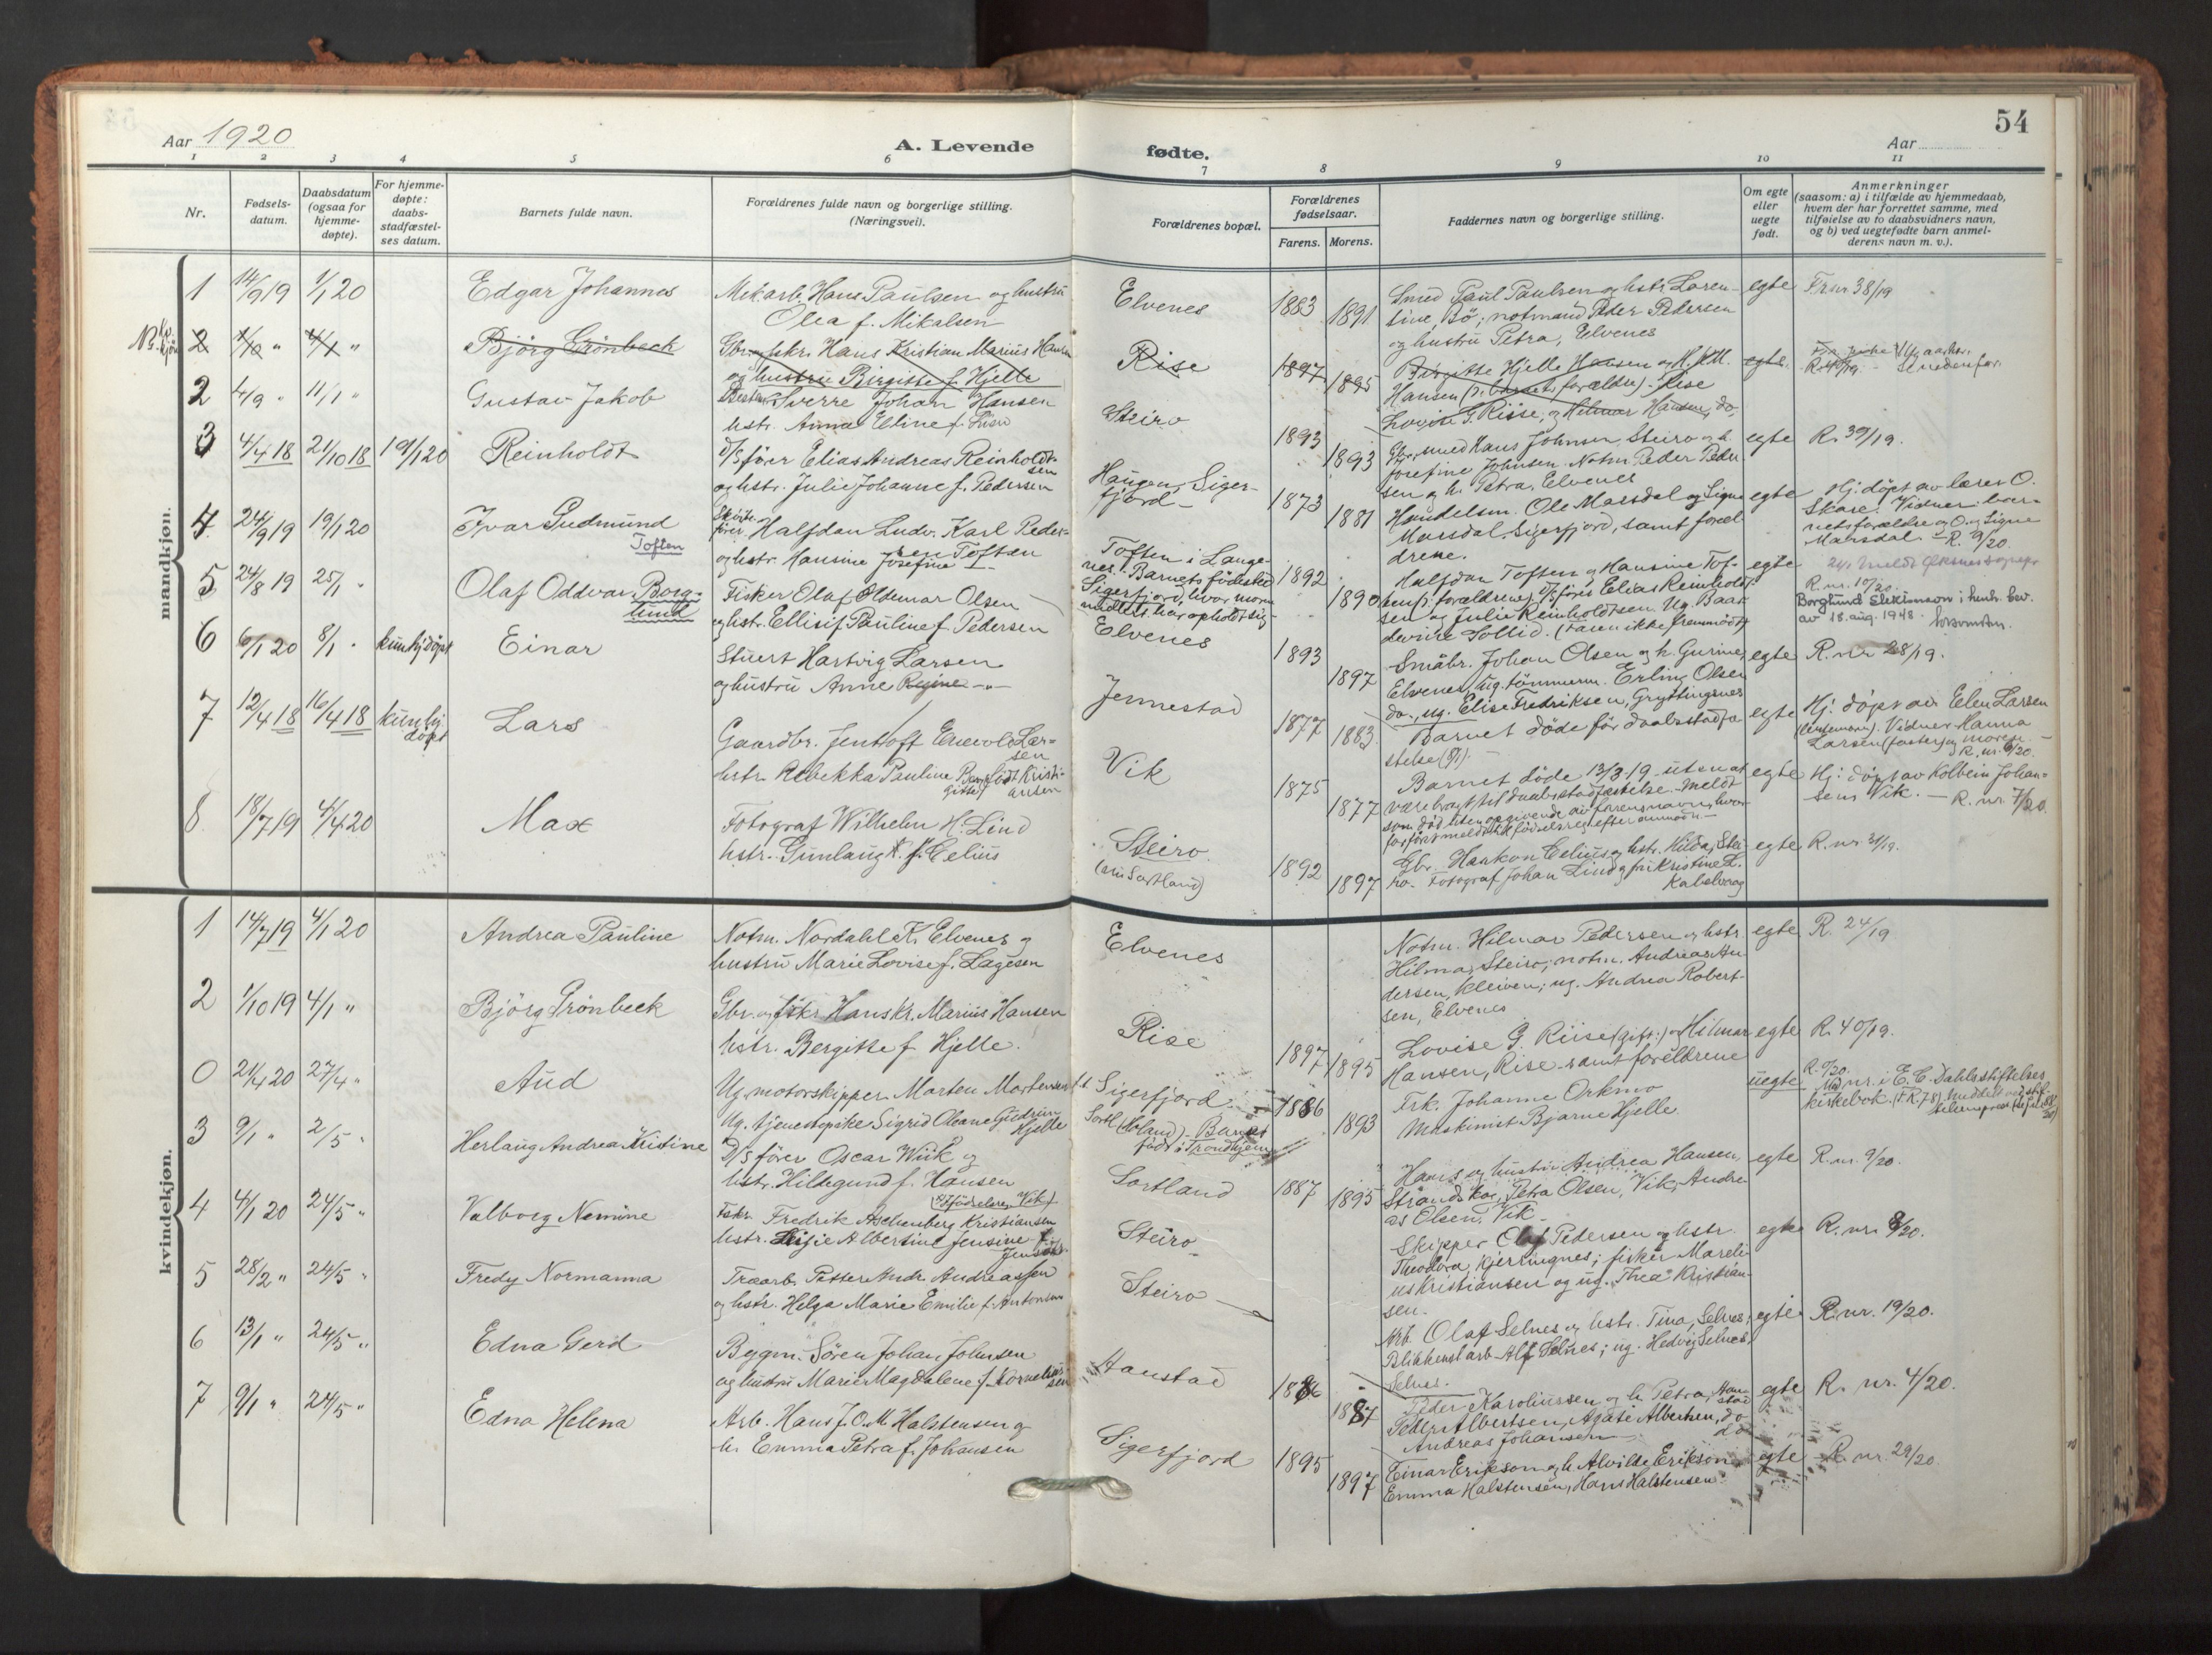 54
Aar 1920
A. Levende
fødte.
Aar
1 2 3 4 5 6 7 8 9 10 11
Nr.
Fødsels-
datum.
Daabsdatum
(ogsaa for
hjemme-
døpte).
For hjemme-
døpte:
daabs-
stadfæstel-
ses datum.
Barnets fulde navn.
Forældrenes fulde navn og borgerlige stilling.
(Næringsvei).
Forældrenes bopæl.
Forældrenes
fødselsaar.
Farens.
Morens.
Faddernes navn og borgerlige stilling.
Om egte
eller
uegte
født.
Anmerkninger
(saasom: a) i tilfælde av hjemmedaab,
hvem der har forrettet samme, med
tilføielse av to daabsvidners navn,
og b) ved uegtefødte barn anmel-
derens navn m. v.).
mandkjøn.
1 14/9 19 1/1 20 Edgar Johannes
Mek.arb. Hans Paulsen og hustru
Olea f. Mikalsen
Elvenes 1883 1891
Smed Paul Paulsen og hstr. Loren-
tine, Bö; notmand Peder Pedersen
og hustru Petra, Elvenes
egte
Fr nr 38/19
2 1/10 " 4/1 " Björg Grönbeck
Gbr. og fskr. Hans Kristian Marius Hansen
og hustru Birgitte f. Hjelle
Rise 1897 1895
Birgitte Hjelle Hansen og H. K. M.
Hansen (barnets forældre) Rise
Lovise G. Riise, og Hilmar Hansen, do.
egte
2 4/9 " 11/1 " Gustav Jakob
Sverre Johan Hansen
hstr. Anna Eline f.
Steiro 1893 1893
Gbr. smed Hans Johnsen, Steiro og h.
Josefine Johnsen. Notm. Peder Peder-
sen og h. Petra, Elvenes
egte
R. 39/19.
3 4/4 18 21/10 18 19/1 20 Reinholdt
D/S förer Elias Andreas Reinholdt-
sen
og hstr. Julie Johanne f. Pedersen
Haugen, Siger-
fjord 1873 1881
Handelsm. Ole Marsdal og Signe
Marsdal, Sigerfjord, samt foræl-
drene.
egte
Hj. döpt av lærer O.
Skare. Vidner: bar-
nets forældre og O. og Signe
Marsdal. – R. 9/20.
4 24/9 19 19/1 20 Ivar Gudmund
Toften
Halfdan Ludv. Karl Peder-
sen Toften
og hstr. Hansine Josefine
Toften i Lange-
nes. Barnets fødested
Sigerfjord, hvor moren
midlert. har opholdt sig
1892 1890
Halfdan Toften og Hansine Tof-
ten (forældrene) D/S förer Elias Reinholdt-
sen og Julie Reinholdtsen. Ug. Baar-
devine Sollid. (Faren ikke fremmödt)
egte
R. nr. 10/20.
5 24/8 19 25/1 " Olaf Oddvar Borg-
lund
Fisker Olaf Oldemar Olsen
og hstr. Ellisif Pauline f. Pedersen
Elvenes 1893 1897
Småbr. Johan Olsen og h. Gurine,
Elvenes, ug. tömmerm. Erling Olsen
do., ug. Elise Fredriksen, Gryttingsnes
egte
Borglund i henh. bev.
av 18. aug. 1948.
R. nr 28/19.
6 6/1 20 8/1 " kun hj.döpt Einar
Stuert Hartvig Larsen
og hustru Anne Regine "
Jennestad 1877 1883
Barnet döde för daabsstadfæ-
stelse
egte
Hj. döpt av Elen Larsen
Vidner Hanna
Larsen (faster) og moren.
R. nr. 6/20.
7 12/4 18 16/4 18 kun hj.
döpt Lars
Gaardbr. Jenthoft Enevold Lar-
sen
hstr. Rebekka Pauline
født Kristi-
ansen
Vik 1875 1877
Barnet döde 13/3-19 uten at
være bragt til daabsstadfæstelse. Meldt
som död uten opgivende av navn, hvor-
for först meldt til födselsreg. efter
egte
Hj: döpt av Kolbein Johan-
sen Vik. – R. nr. 7/20.
8 18/7 19 4/4 20 Max
Fotograf Wilhelm H. Lind
hstr. Gunlaug K. f. Celius
Steiro
(Sortland)
1892 1897
Gbr. Haakon Celius og hstr. Hilda, Stei-
ro. Fotograf Johan Lind og fru Kristine L.
Kabelvaag
egte
R. nr. 31/19.
kvindekjøn.
1 14/7 19 4/1 20 Andrea Pauline
Notm. Nordahl K. Elvenes og
hustru Marie Lovise f. Lagesen
Elvenes
Notm. Hilmar Pedersen og hstr.
Hilma, Steiro; notm. Andreas An-
dersen, Kleiven; ug. Andrea Robert-
sen, Elvenes
egte
R. 24/19
2 1/10 19 4/1 " Björg Grönbeck
Gbr. og fskr Hans Kr. Marius Hansen
hstr. Bergitte f. Hjelle.
Rise 1897 1895
Lovise G. Riise (gift) og Hilmar
Hansen, Rise samt foreldrene
egte
R. 40/19.
0 21/4 20 27/4 " Aud
Ug. motorskipper Morton Mortensen
Ug. tjenestepike Sigrid Oleane Gudrun
Hjelle
Sigerfjord
Sortl. (Holand) Barnet
født i Trondhjem
1886 1893
Frk. Johanne Orkmo
Maskinist Bjarne Hjelle
uegte
nr. i E. C. Dahls stiftelses
kirkebok.
3 9/1 " 2/5 " Herlaug Andrea Kristine
D/S förer Oscar Wiik og
hstr. Hildegund f. Hansen
Sortland 1887 1895
Hans og hustru Andrea Hansen,
Strandskog, Petra Olsen, Vik, Andre-
as Olsen, Vik
egte
R. nr. 9/20.
4 4/1 20 24/5 " Valborg Nemine
Fskr. Fredrik Aschenberg Kristiansen
hstr. Albertine Jensine f.
Jensen
Steiro
Skipper Olaf Pedersen og hstr.
Theodora, Kjerringnes; fisker Mareli-
us Kristiansen og ug. Thea Kristian-
sen.
egte
R. nr. 8/20.
5 28/2 " 24/5 " Fredy Normanna
Træarb. Petter Andr. Andreassen
og hstr. Helga Marie Emilie f. Antonsen
Steiro
Arb. Olaf Selnes og hstr. Tina, Selnes;
Blikkensl.arb. Alf Selnes; ug. Hedvig Selnes,
Selnes.
egte
R. nr. 19/20.
6 13/1 " 24/5 " Edna Gerd
Bygm. Sören Johan Johnsen
og hustru Marie Magdalene f. Kornelius-
sen
Hanstad 1886 1887
Peder Karoliussen og h. Petra, Han-
stad
Peder Albertsen, Agate Albertsen, do
Andreas Johansen do
egte
R. nr. 4/20.
7 9/1 " 24/5 " Edna Helena
Arb. Hans J. O. M. Halstensen og
h. Emma Petra f. Johansen
Sigerfjord 1895 1897
Einar Erikson og h. Alvilde Erikson
Emma Halstensen, Hans Halstensen
egte
R. nr. 29/20.